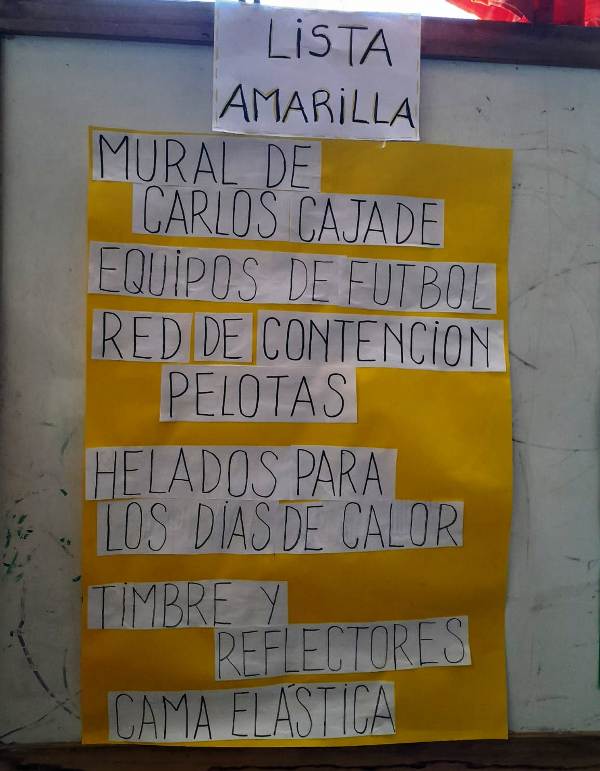 LISTA
AMARILLA
MURAL DE
CARLOS CAJADE
EQUIPOS DE FUTBOL
RED DE CONTENCION
PELOTAS
HELADOS PARA
LOS DÍAS DE CALOR
TIMBRE Y
REFLECTORES
CAMA ELÁSTICA